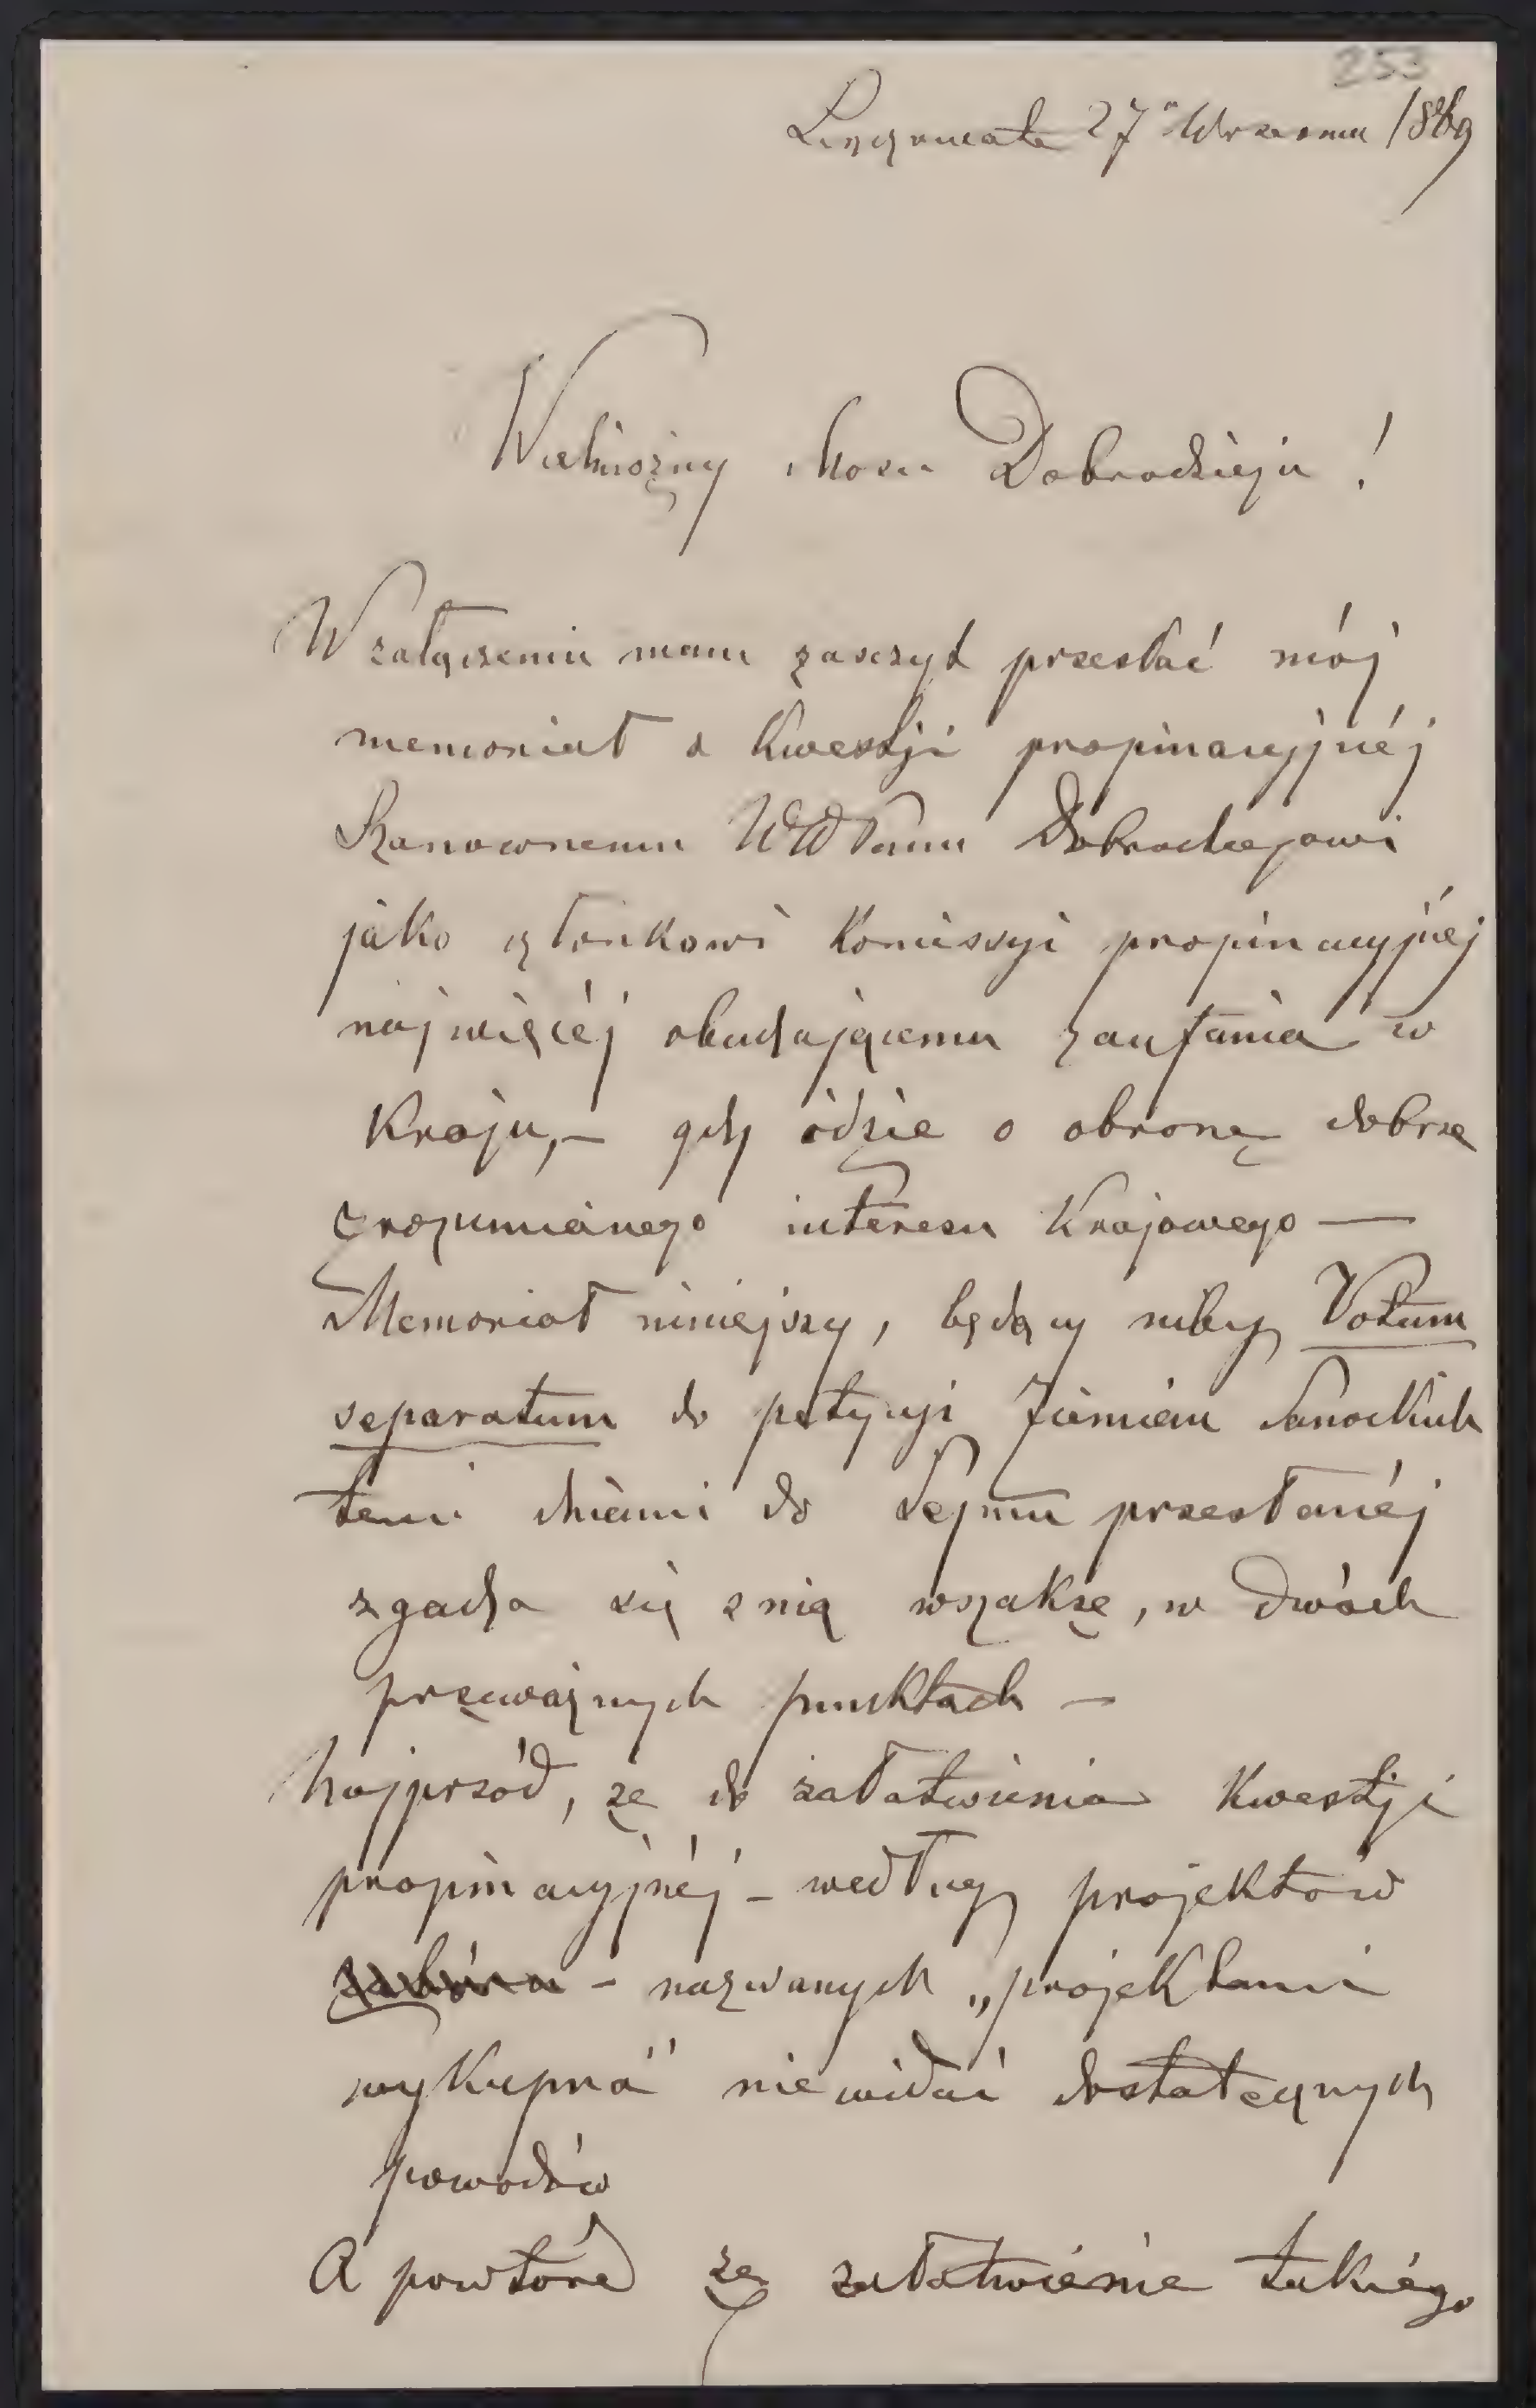 253
27 Września 1869
Wielmożny Mości Dobrodzieju!
W załączeniu mam zaszczyt przesłać mój
memoriał o kwestji propinacyjnéj
Szanownemu WW Panu Dobrodziejowi
jako członkowi Komissyi propinacyjnéj
najwięcéj obudzającemu zaufania w
Kraju, – gdy idzie o obronę dobrze
zrozumianego interesu Krajowego —
Memoriał niniejszy, będący niby Votum
separatum do petycyi Ziemian Sanockich
temi dniami do Sejmu przesłanéj
zgadza się z nią wszakże, w dwóch
przeważnych punktach –
Najprzód, że do załatwienia Kwestji
propinacyjnéj – według projektów
– nazwanych „projektami
wykupna" nie widać dostatecznych
powodów
A powtóre że załatwienie takiego